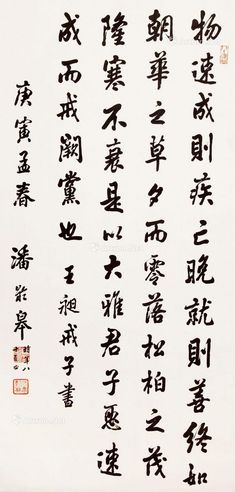 物速成則疾亡晚就則善終如
朝華之草夕而零落松柏之茂
隆寒不衰是以大雅君子惡速
成而戒闕黨也 王昶戒子書
庚寅孟春 潘齡皋